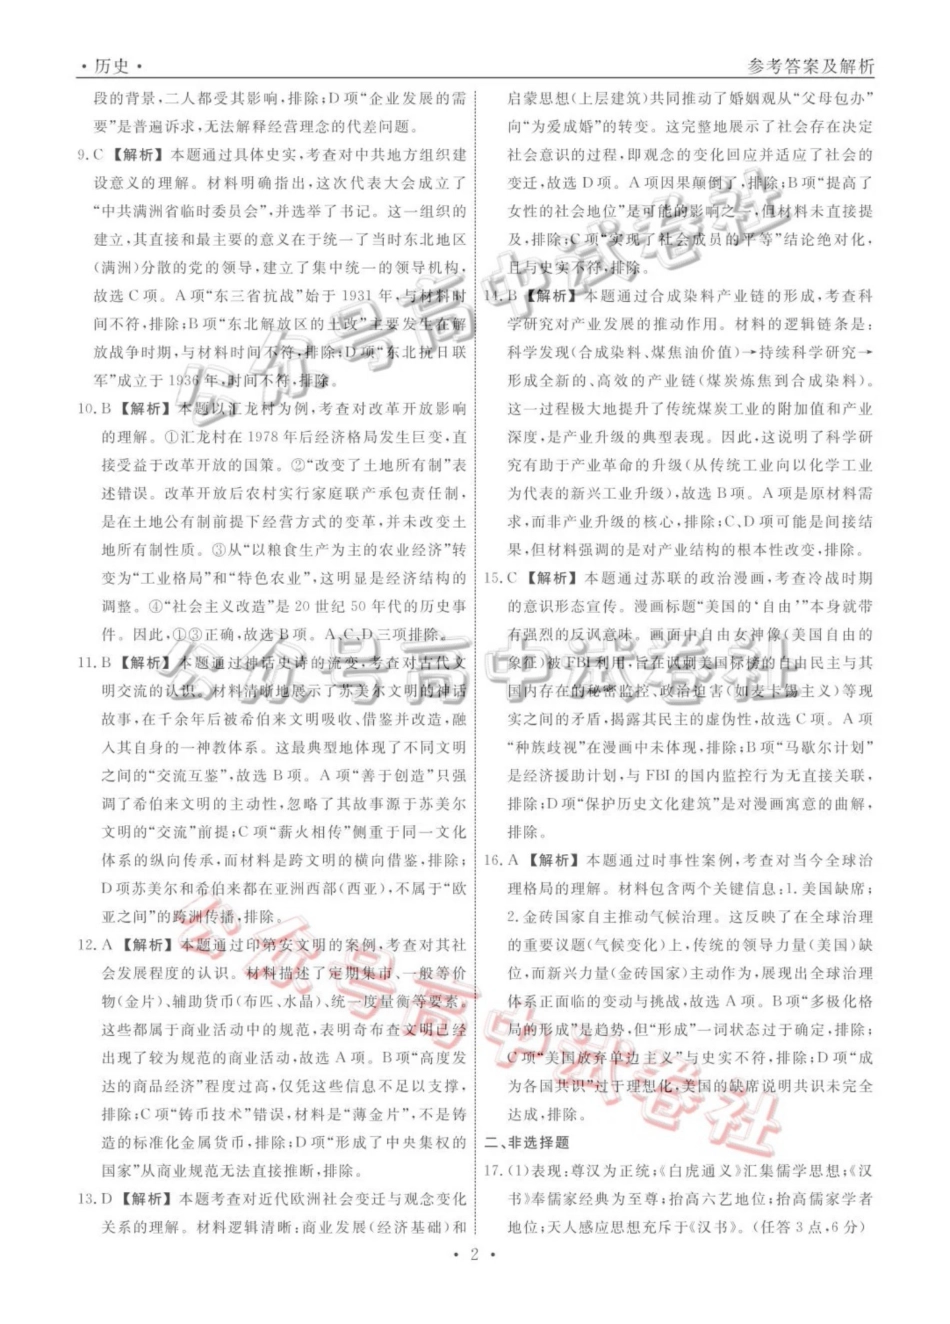 ·历史·
参考答案及解析
段的背景,二人都受其影响,排除;D项“企业发展的需
要”是普遍诉求,无法解释经营理念的代差问题。
9.C 【解析】本题通过具体史实,考查对中共地方组织建
设意义的理解。材料明确指出,这次代表大会成立了
“中共满洲省临时委员会”,并选举了书记。这一组织的
建立,其直接和最主要的意义在于统一了当时东北地区
(满洲)分散的党的领导,建立了集中统一的领导机构,
故选C项。A项“东三省抗战”始于1931年,与材料时
间不符,排除;B项“东北解放区的土改”主要发生在解
放战争时期,与材料时间不符,排除;D项“东北抗日联
军”成立于1936年,时间不符,排除。
10.B 【解析】本题以汇龙村为例,考查对改革开放影响
的理解。①汇龙村在1978年后经济格局发生巨变,直
接受益于改革开放的国策。②“改变了土地所有制”表
述错误。改革开放后农村实行家庭联产承包责任制,
是在土地公有制前提下经营方式的变革,并未改变土
地所有制性质。③从“以粮食生产为主的农业经济”转
变为“工业格局”和“特色农业”,这明显是经济结构的
调整。④“社会主义改造”是20世纪50年代的历史事
件。因此,①③正确,故选B项。A、C、D三项排除。
11.B 【解析】本题通过神话史诗的流变,考查对古代文
明交流的认识。材料清晰地展示了苏美尔文明的神话
故事,在千余年后被希伯来文明吸收、借鉴并改造,融
入其自身的一神教体系。这最典型地体现了不同文明
之间的“交流互鉴”,故选B项。A项“善于创造”只强
调了希伯来文明的主动性,忽略了其故事源于苏美尔
文明的“交流”前提;C项“薪火相传”侧重于同一文化
体系的纵向传承,而材料是跨文明的横向借鉴,排除;
D项苏美尔和希伯来都在亚洲西部(西亚),不属于“欧
亚之间”的跨洲传播,排除。
12.A 【解析】本题通过印第安文明的案例,考查对其社
会发展程度的认识。材料描述了定期集市、一般等价
物(金片)、辅助货币(布匹、水晶)、统一度量衡等要素。
这些都属于商业活动中的规范,表明奇布查文明已经
出现了较为规范的商业活动,故选A项。B项“高度发
达的商品经济”程度过高,仅凭这些信息不足以支撑,
排除;C项“铸币技术”错误,材料是“薄金片”,不是铸
造的标准化金属货币,排除;D项“形成了中央集权的
国家”从商业规范无法直接推断,排除。
13.D 【解析】本题考查对近代欧洲社会变迁与观念变化
关系的理解。材料逻辑清晰:商业发展(经济基础)和
启蒙思想(上层建筑)共同推动了婚姻观从“父母包办”
向“为爱成婚”的转变。这完整地展示了社会存在决定
社会意识的过程,即观念的变化回应并适应了社会的
变迁,故选D项。A项因果颠倒了,排除;B项“提高了
女性的社会地位”是可能的影响之一,但材料未直接提
及,排除;C项“实现了社会成员的平等”结论绝对化,
且与史实不符,排除。
14.B 【解析】本题通过合成染料产业链的形成,考查科
学研究对产业发展的推动作用。材料的逻辑链条是:
科学发现(合成染料、煤焦油价值)→持续科学研究→
形成全新的、高效的产业链(煤炭炼焦到合成染料)。
这一过程极大地提升了传统煤炭工业的附加值和产业
深度,是产业升级的典型表现。因此,这说明了科学研
究有助于产业革命的升级(从传统工业向以化学工业
为代表的新兴工业升级),故选B项。A项是原材料需
求,而非产业升级的核心,排除;C、D项可能是间接结
果,但材料强调的是对产业结构的根本性改变,排除。
15.C 【解析】本题通过苏联的政治漫画,考查冷战时期
的意识形态宣传。漫画标题“美国的‘自由’”本身就带
有强烈的反讽意味。画面中自由女神像(美国自由的
象征)被FBI利用,旨在讽刺美国标榜的自由民主与其
国内存在的秘密监控、政治迫害(如麦卡锡主义)等现
实之间的矛盾,揭露其民主的虚伪性,故选C项。A项
“种族歧视”在漫画中未体现,排除;B项“马歇尔计划”
是经济援助计划,与FBI的国内监控行为无直接关联,
排除;D项“保护历史文化建筑”是对漫画寓意的曲解,
排除。
16.A 【解析】本题通过时事性案例,考查对当今全球治
理格局的理解。材料包含两个关键信息:1.美国缺席;
2.金砖国家自主推动气候治理。这反映了在全球治理
的重要议题(气候变化)上,传统的领导力量(美国)缺
位,而新兴力量(金砖国家)主动作为,展现出全球治理
体系正面临的变动与挑战,故选A项。B项“多极化格
局的形成”是趋势,但“形成”一词状态过于确定,排除;
C项“美国放弃单边主义”与史实不符,排除;D项“成
为各国共识”过于理想化,美国的缺席说明共识未完全
达成,排除。
二、非选择题
17.(1)表现:尊汉为正统;《白虎通义》汇集儒学思想;《汉
书》奉儒家经典为至尊;抬高六艺地位;抬高儒家学者
地位;天人感应思想充斥于《汉书》。(任答3点,6分)
·2·
公众号高中试卷社
公众号高中试卷社
公众号高中试卷社